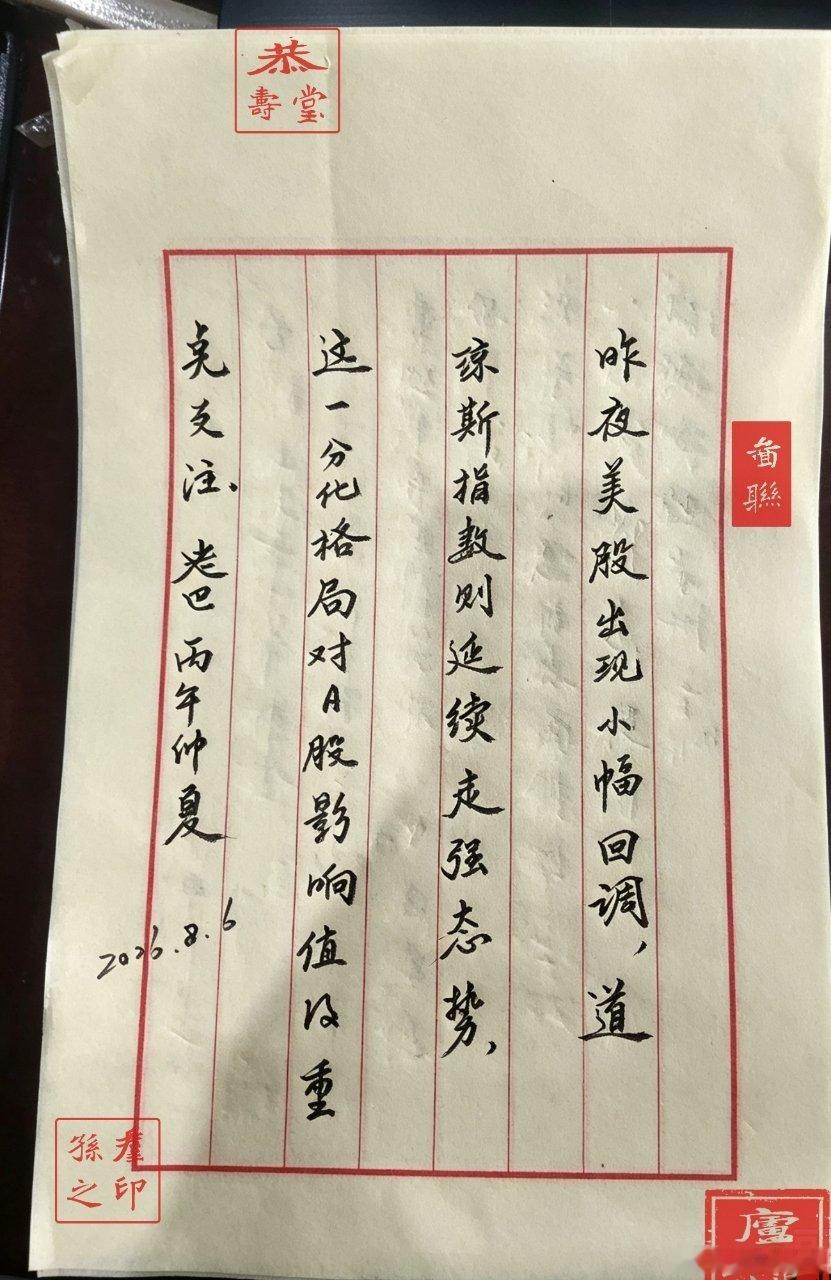 恭
壽堂
昨夜美股出现小幅回调，道
琼斯指数则延续走强态势，
这一分化格局对A股影响值得重
点关注、老巴丙午仲夏
2026.8.6
聯
孫
之印
盧